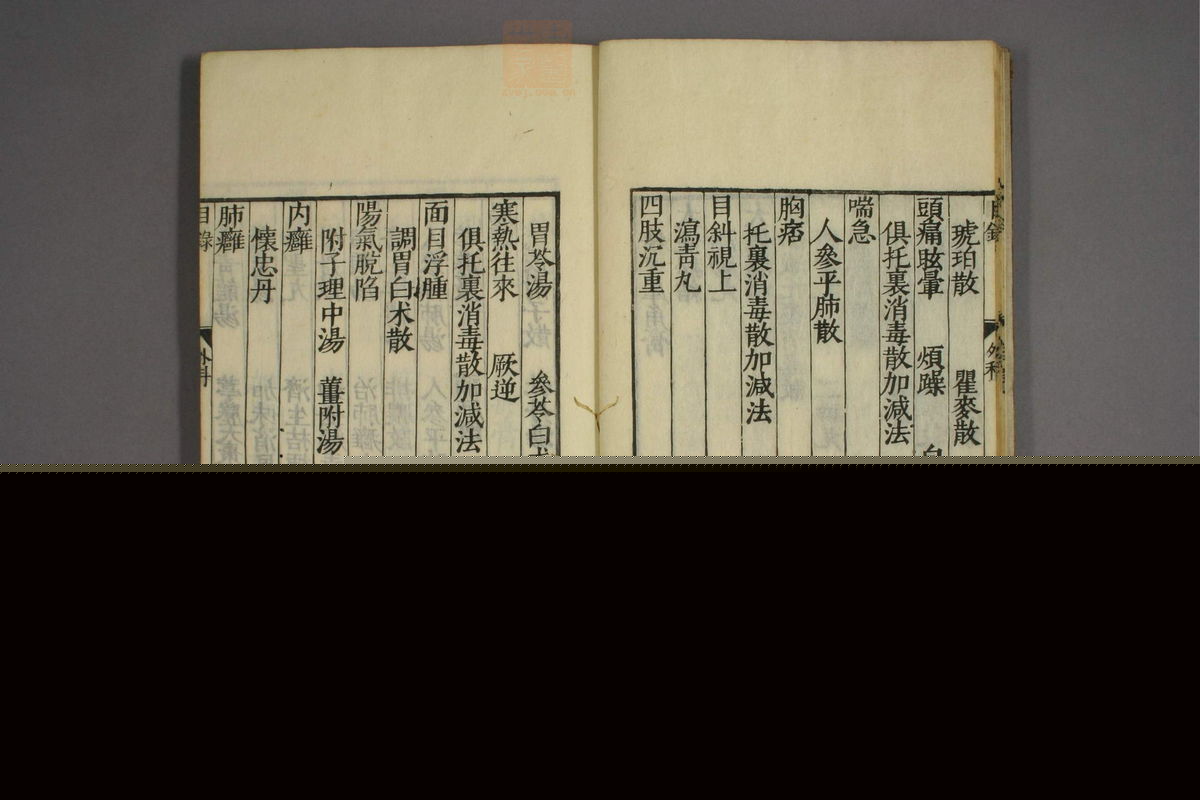 目錄 外科
琥珀散 瞿麥散
頭痛眩暈 煩躁
俱托裏消毒散加減法
喘急
人參平肺散
胸痞
托裏消毒散加減法
目斜視上
瀉靑丸
四肢沉重
胃苓湯 參苓白
寒熱往來 厥逆
俱托裏消毒散加減法
面目浮腫
調胃白朮散
陽氣脫陷
附子理中湯 薑附湯
内癰
懷忠丹
肺癰
目錄